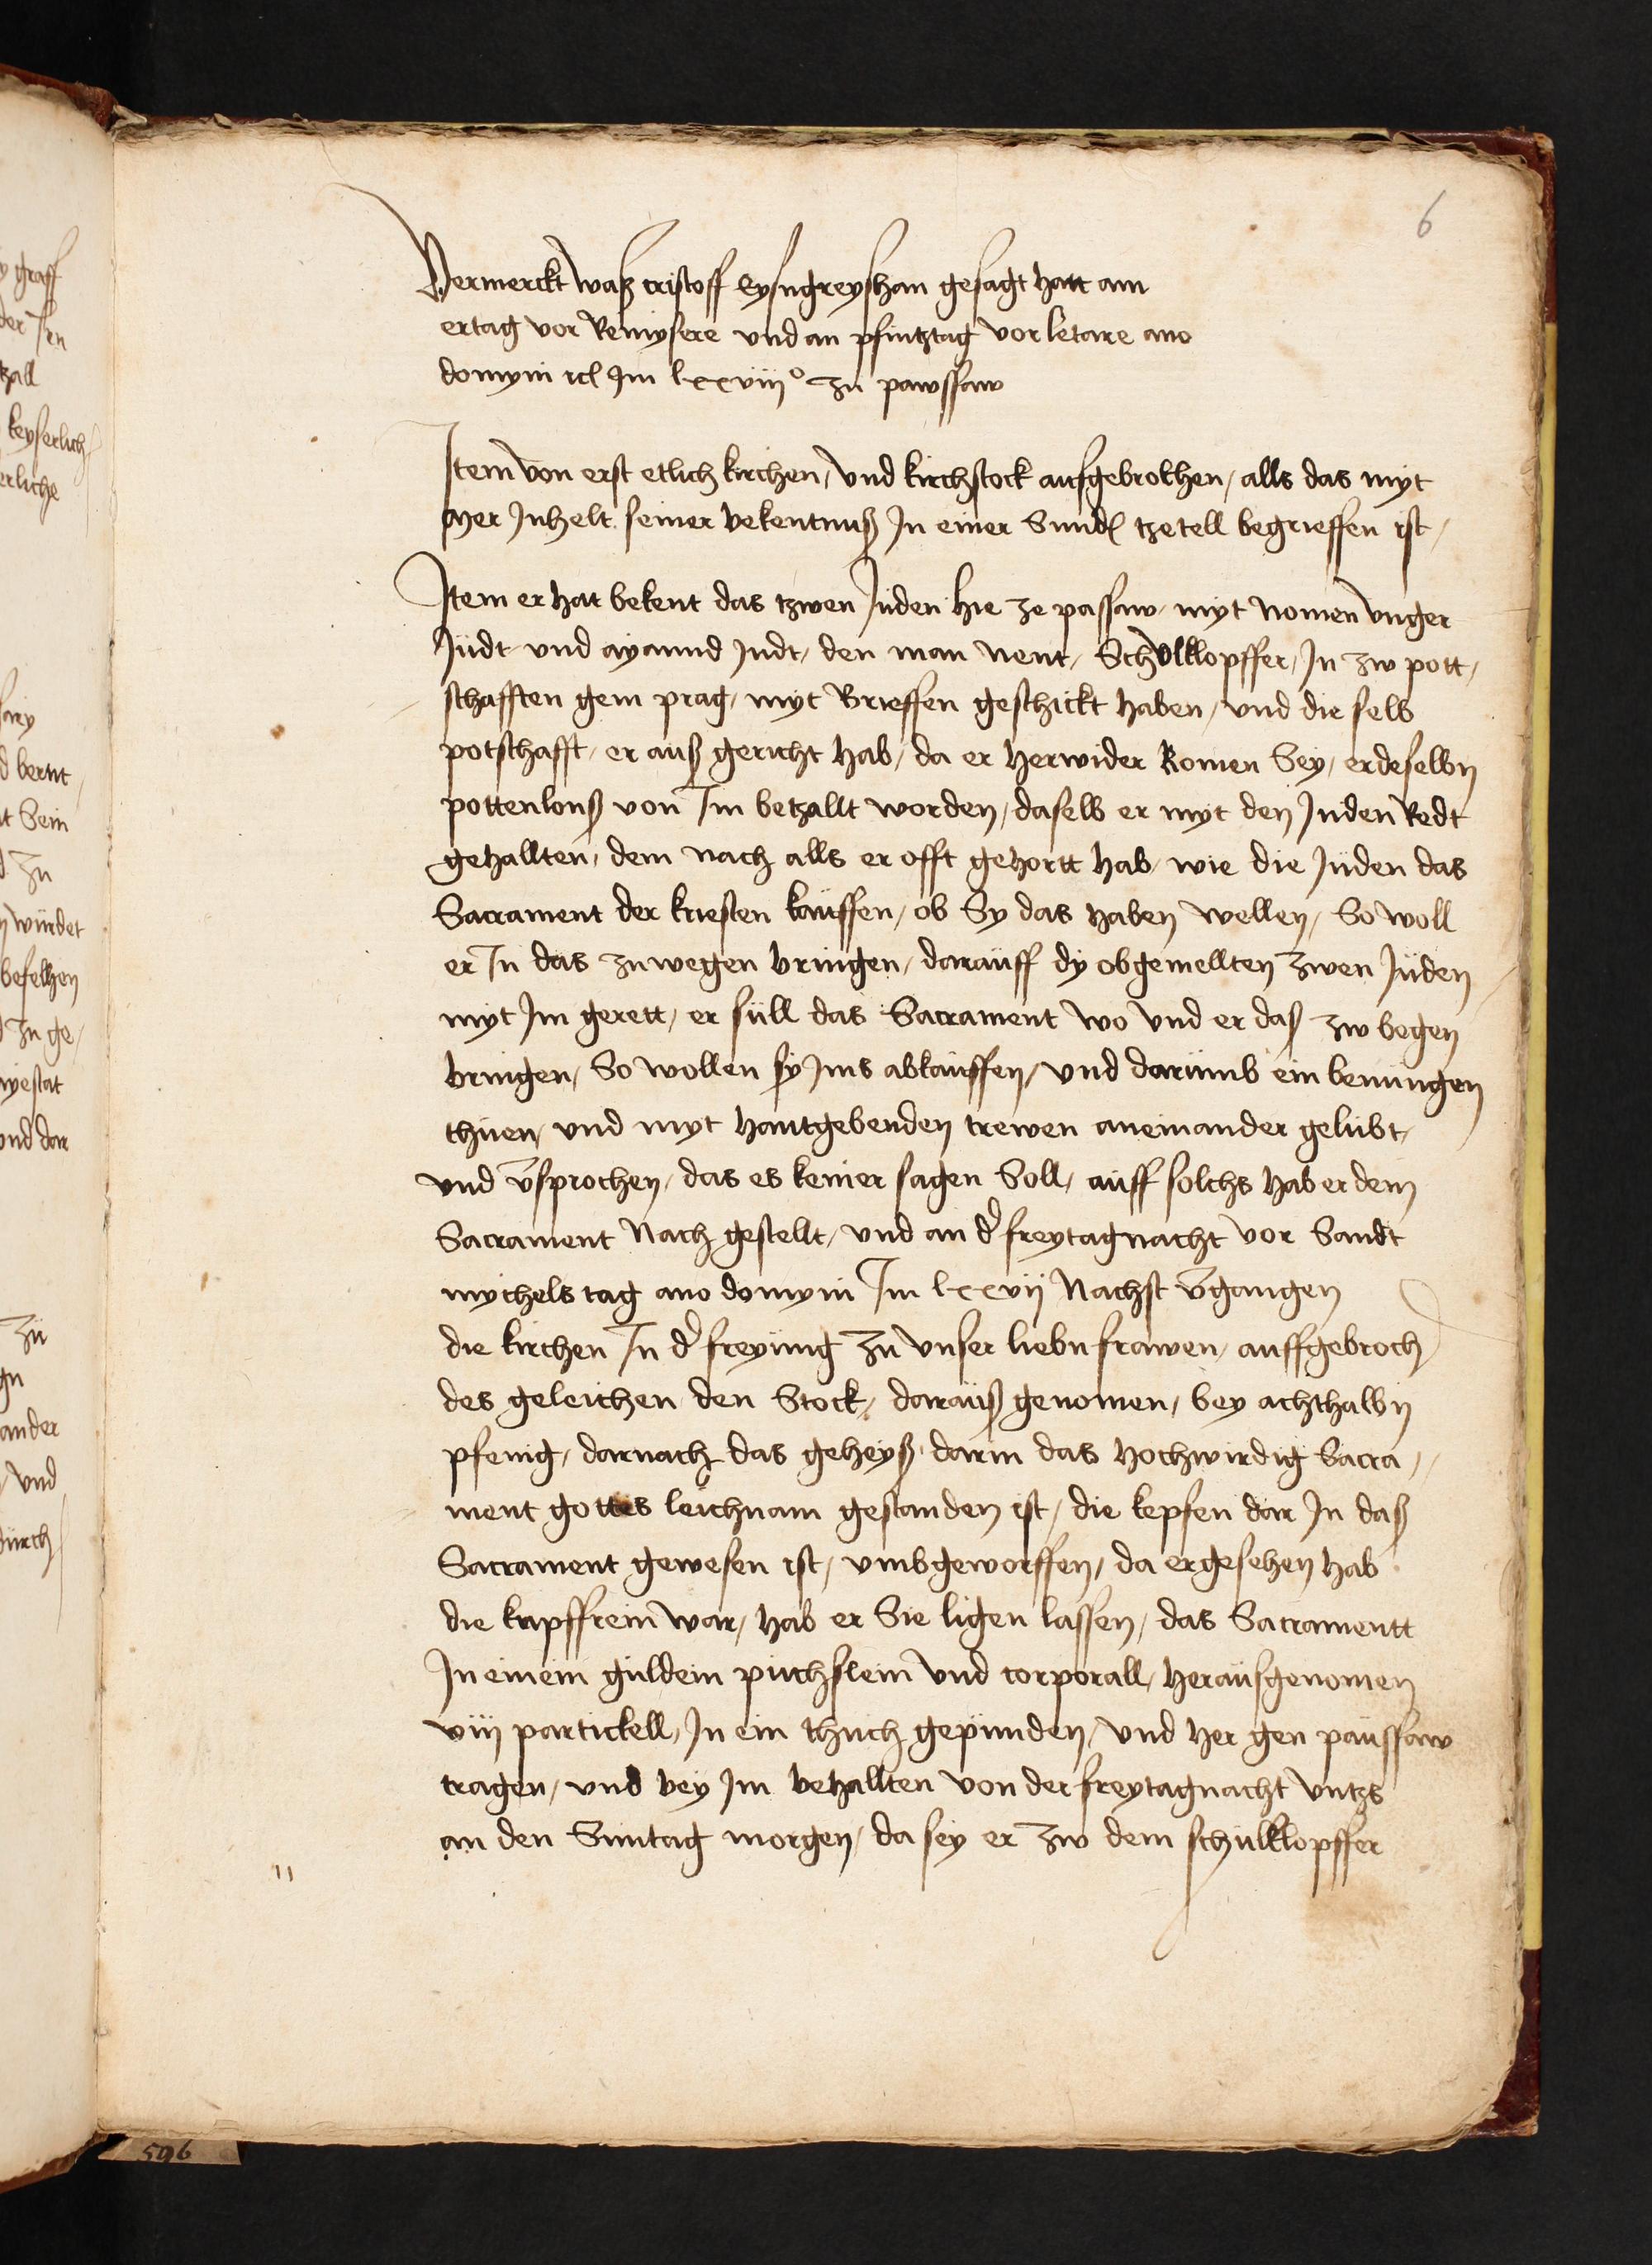 6
Vermerckt waß cristoff Eysngreyshan gesagt hatt am
ertag vor Remysere und an pfintztag vor letare ano
domyni rcl Im lxxviijº zu pawssaw
Item von erst etlich kirchen, und kirchstock aufgebrochen, alls das myt
mer Inhelt seiner bekentnuß In einer Sundt tzetell begrieffen ist,
Item er hat bekent das tzwen Juden hie ze passaw, myt Nomen unger
Judt und aÿamnd Judt, den man nent, Schulklopffer, In zw pott,
schafften gein prag, myt Brieffen geschickt haben, und die selb
potschafft, er auß gericht hab, da er herwider komen Sey, er deselbn
pottenlonß von Im betzallt worden, daselb er myt den Juden Redt
gehallten, dem nach alls er offt gehortt hab, wie die Juden das
Sacrament der kriesten kauffen, ob Sy das haben wellen, So woll
er In das zuwegen bringen, darauff dy obgemellten zwen Juden
myt Im gerett, er sull das Sacrament wo und er daß zw begen
bringen, So wollen sy Ims abkauffen, und darumb ein benungen
thuen, und myt hantgebenden trewen aneinander gelubt,
und v̄sprochen, das es keiner sagen Soll, auff solchs hab er dem
Sacrament Nach gestellt, und an d' freytagnacht vor Sandt
mychels tag ano domyni Im lxxvij Nachst v̄gangen
die kirchen In d' freyung zu unser liebn frawen, auffgebroch
des geleichen den Stock, darauß genomen, bey achthalbn
pfenig, darnach das geheyß, darin das hochwirdig Sacra,
ment gottes leichnam gestanden ist, die kepsen dar In daß
Sacrament gewesen ist, umbgeworffen, da er gesehen hab
die kupffrein war, hab er Sie ligen lassen, das Sacramentt
In einem guldein puchslein und corporall, herausgenomen
viij partickell, In ein thuch gepunden, und her gen paussaw
tragen, und bey Im behallten von der freytagnacht untzs
an den Suntag morgen, da sey er zw dem schulklopffer
11
596